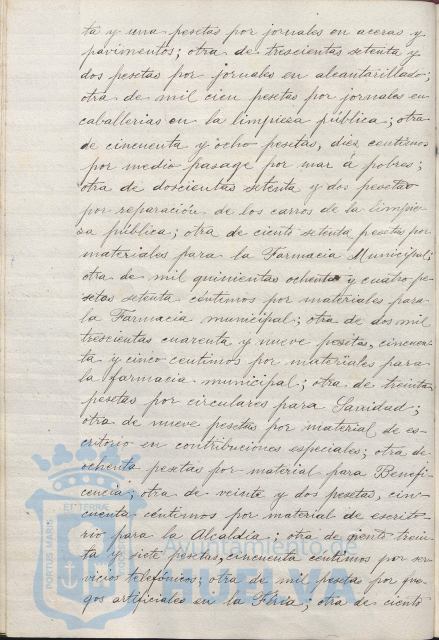 ta y una pesetas por jornales en aceras y
pavimentos; otra de trescientas setenta y
dos pesetas por jornales en alcantarillado;
otra de mil cien pesetas por jornales en
caballerias en la limpiesa pública; otra
de cincuenta y ocho pesetas, diez centimos
por medio pasage por mar á pobres;
otra de doscientas setenta y dos pesetas
por reparación de los carros de la limpie-
sa pública; otra de ciento setenta pesetas por
materiales para la Farmacia Municipal;
otra de mil quinientas ochenta y cuatro pe-
setas setenta céntimos por materiales para
la Farmacia municipal; otra de dos mil
trescientas cuarenta y nueve pesetas, cincuen-
ta y cinco centimos por materiales para
la farmacia municipal; otra de treinta
pesetas por circulares para Sanidad;
otra de nueve pesetas por material de es-
critorio en contribuciones especiales; otra de
ochenta pesetas por material para Benefi-
cencia; otra de veinte y dos pesetas, cin-
cuenta céntimos por material de escrito-
rio para la Alcaldia; otra de ciento trein-
ta y siete pesetas, cincuenta centimos por ser-
vicios telefónicos; otra de mil peseta por fue-
gos artificiales en la Féria; otra de ciento
PORTUS MARIS
ET TERRÆ
Ayuntamiento de
HUELVA